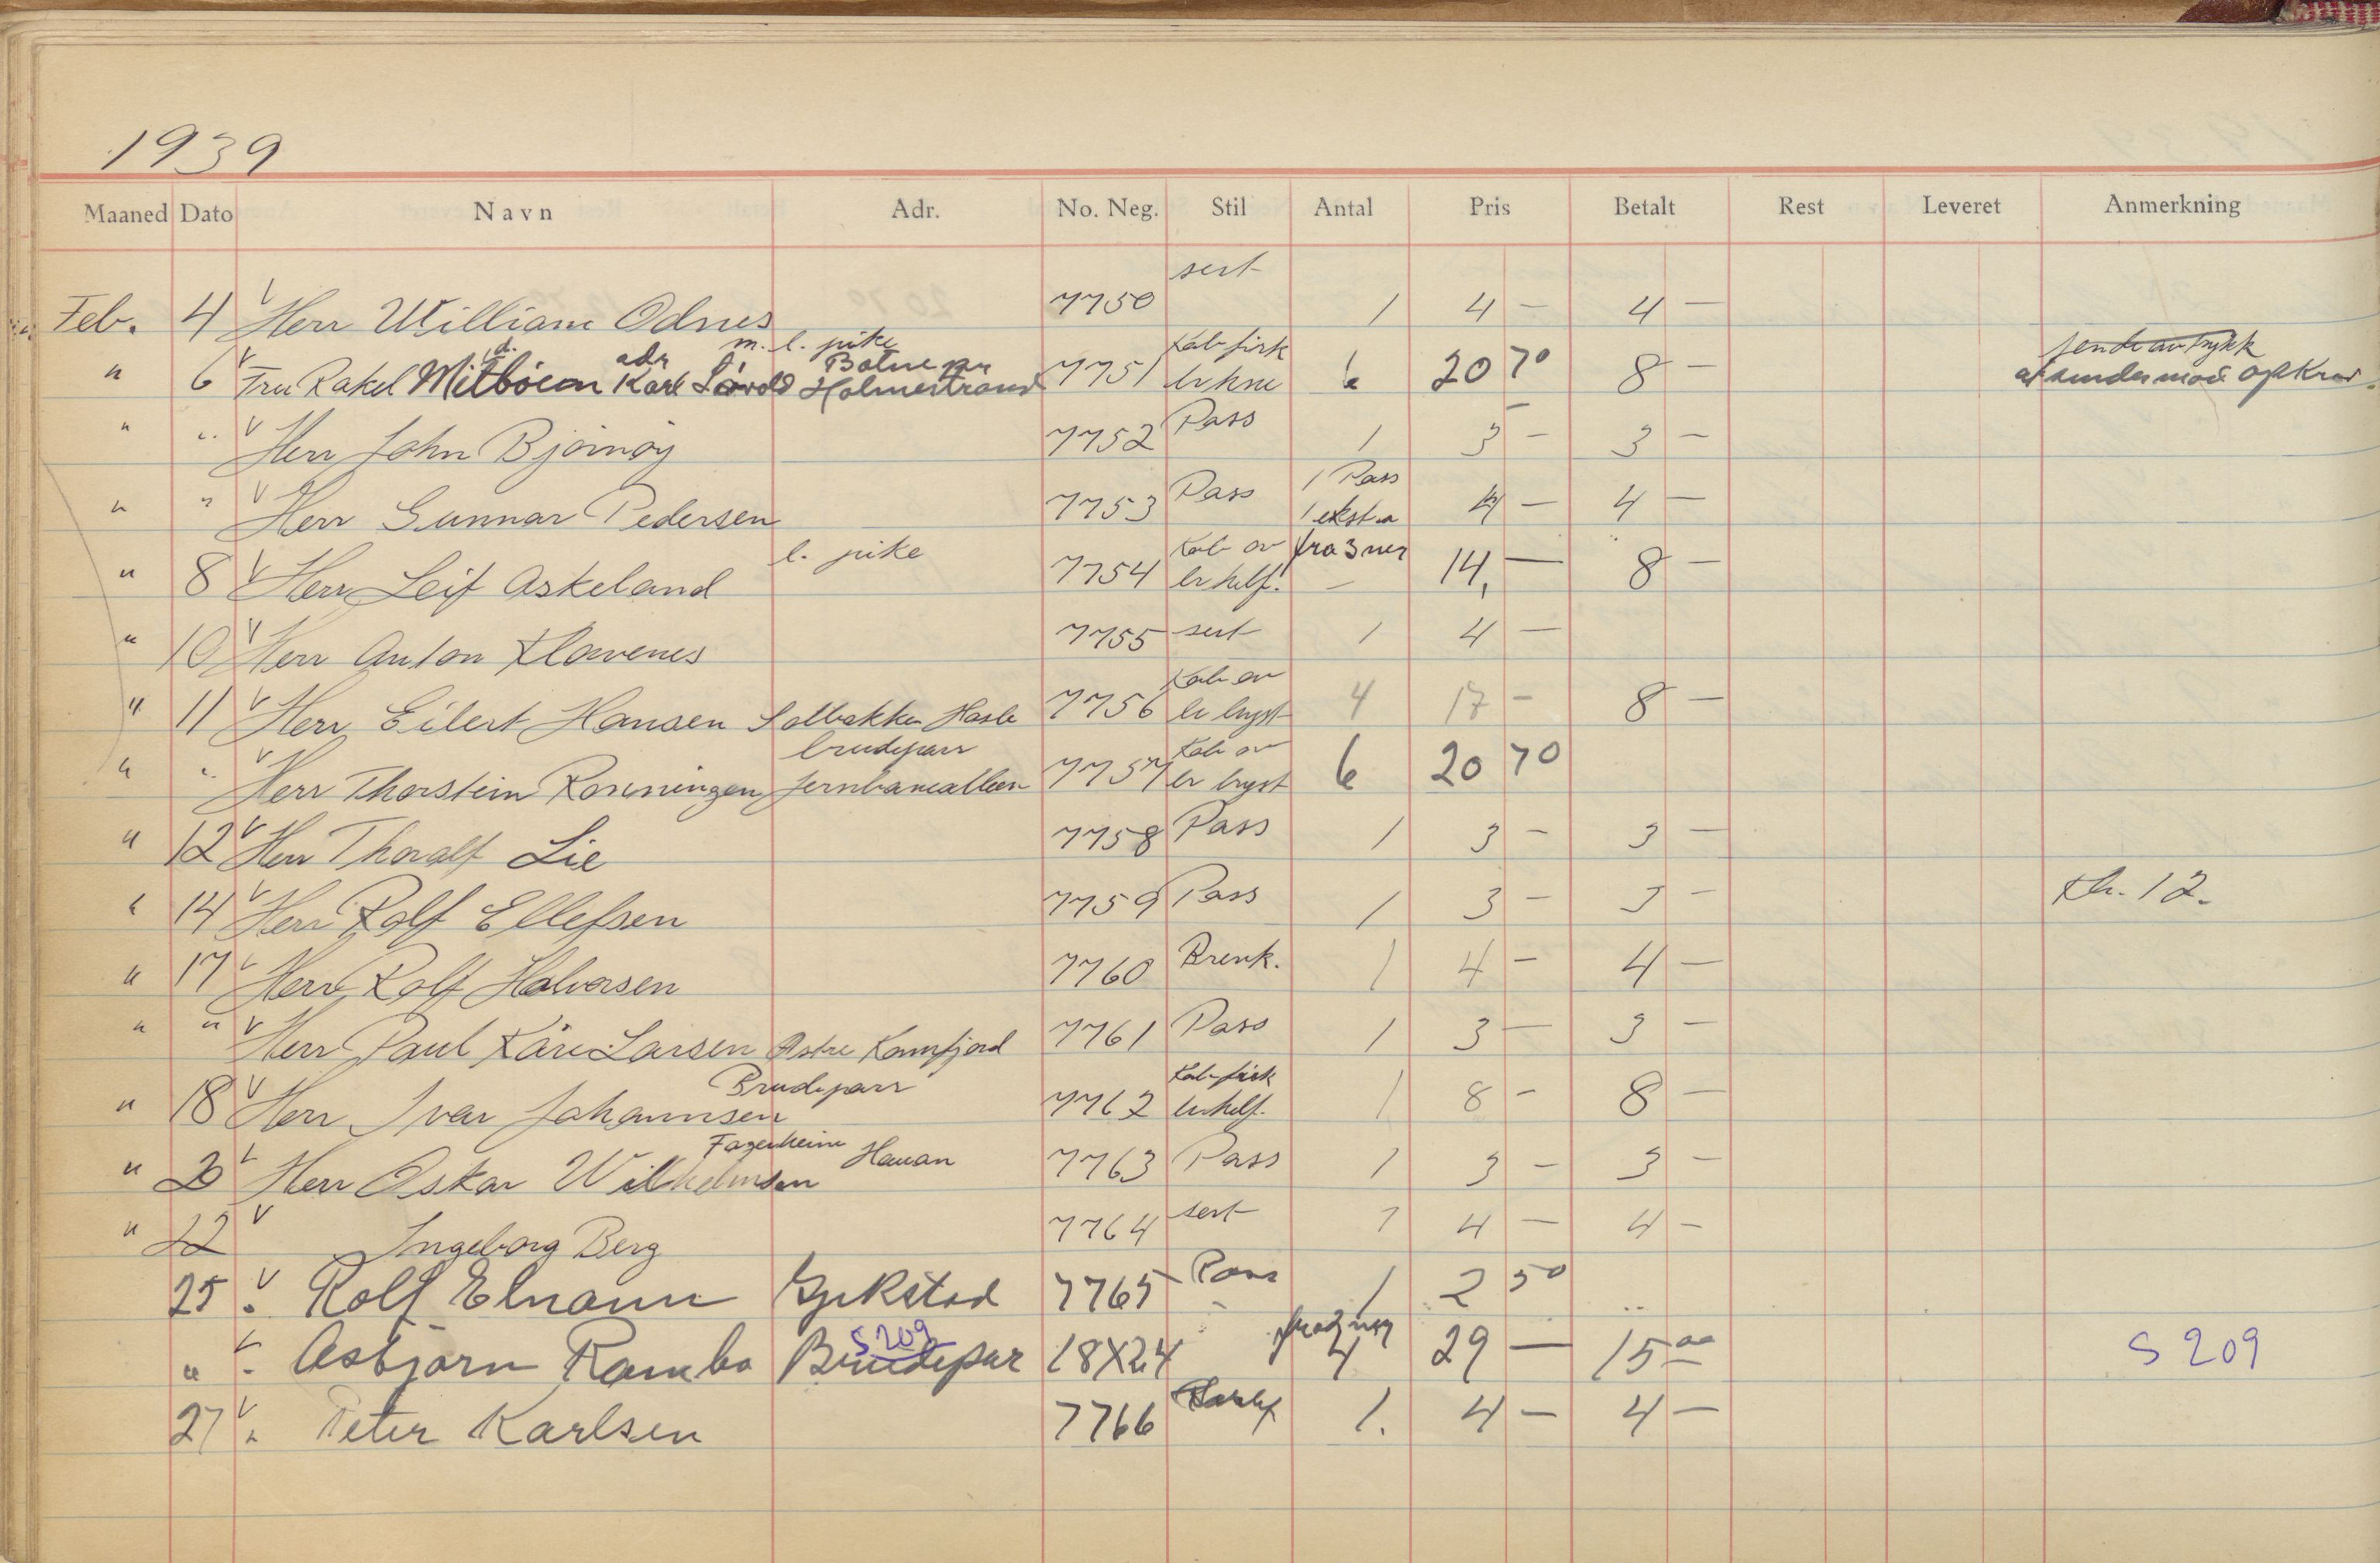 1939
Maaned Dato Navn Adr. No. Neg. Stil Antal Pris Betalt Rest Leveret Anmerkning
sert
Feb. 4 V Herr William Odnes 7750 1 4 — 4 —
m. l. pike Kab fisk
d. adr Botne pr sende avtrykk
" 6 V Fru Rakel Karl Holmestrand 7751 6 20 70 8 — mod opkrav
" " V Herr John Bjørnøy 7752 Pass 1 3 — 3 —
1 Pass
" " V Herr Gunnar Pedersen 7753 Pass 1 ekstra 4 — 4 —
l. pike Kab av fra 3 neg
" 8 V Herr Leif Askeland 7754 br helf. — 14, — 8 —
" 10 V Herr Anton Klavenes 7755 sert 1 4 —
Kab av
" 11 V Herr Eilert Hansen Solbakken Hasle 7756 br bryst 4 17 — 8 —
brudepar Kab av
" " V Herr Thorstein Rønningen Jernbanealleen 7757 br bryst 6 20 70
" 12 V Herr Thoralf Lie 7758 Pass 1 3 — 3 —
" 14 V Herr Rolf Ellefsen 7759 Pass 1 3 — 3 — kl. 12.
" 17 V Herr Rolf Halvorsen 7760 Brenk. 1 4 — 4 —
" " V Herr Paul Kåre Larsen Østre Kamfjord 7761 Pass 1 3 — 3 —
Brudeparr Kab fisk
" 18 V Herr Ivar Johannsen 7762 br helf. 1 8 — 8 —
Fagerheim Hauan
" 20 V Herr Oskar Wilhelmsen 7763 Pass 1 3 — 3 —
" 22 V Ingeborg Berg 7764 sert 1 4 — 4 —
25 V " Rolf Elnann Gjekstad 7765 Pass 1 2 50 ..
S 209 fra 2 neg
" V " Asbjørn Rambo Brudepar 18X24 4 29 — 15 00 S 209
27 V " Peter Karlsen 7766 1. 4 — 4 —